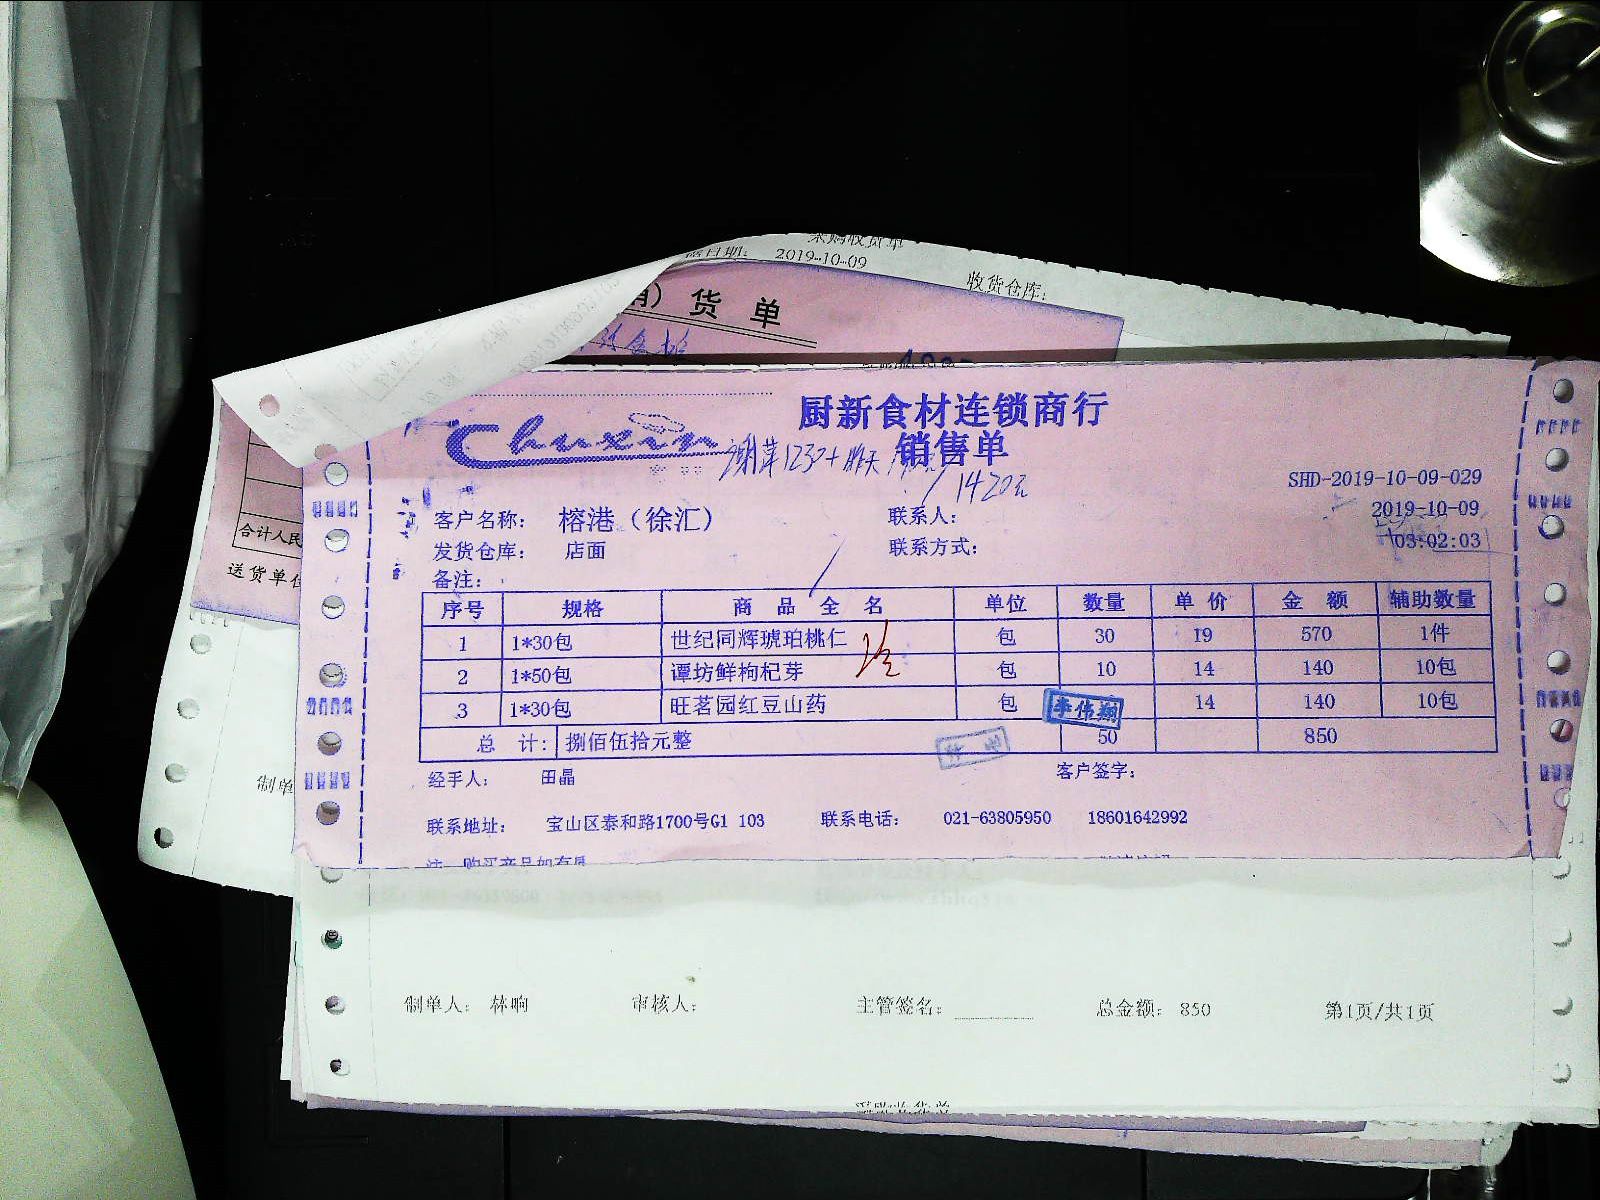 采购收货单
日期: 2019-10-09
收货仓库:
货单
Chuxin
厨新食材连锁商行
销售单
1420元
SHD-2019-10-09-029
客户名称: 榕港（徐汇）
联系人:
2019-10-09
发货仓库: 店面
联系方式:
03:02:03
备注:
序号 规格 商品全名 单位 数量 单价 金额 辅助数量
1 1*30包 世纪同辉琥珀桃仁 包 30 19 570 1件
2 1*50包 谭坊鲜枸杞芽 包 10 14 140 10包
3 1*30包 旺茗园红豆山药 包 14 140 10包
李伟翔
总 计: 捌佰伍拾元整 50 850
经手人: 田晶
客户签字:
联系地址: 宝山区泰和路1700号G1 103 联系电话: 021-63805950 18601642992
合计人民
送货单位
制单
制单人: 林响 审核人: 主管签名: 总金额: 850 第1页/共1页